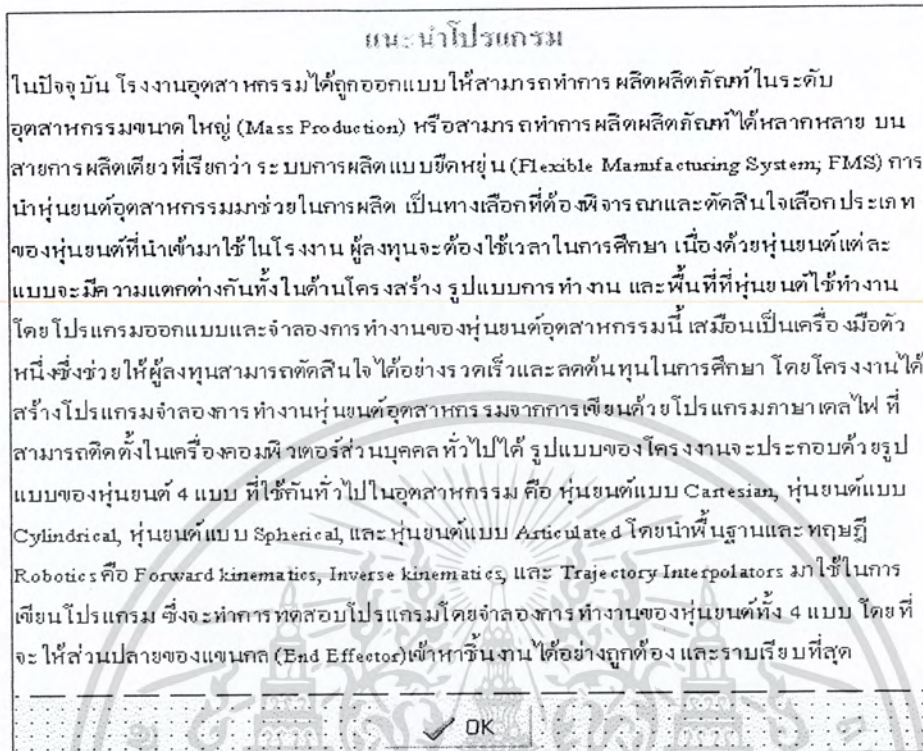 แนะนำโปรแกรม
ในปัจจุบัน โรงงานอุตสาหกรรมได้ถูกออกแบบให้สามารถทำการ ผลิตผลิตภัณฑ์ ในระดับ
อุตสาหกรรมขนาดใหญ่ (Mass Production) หรือสามารถทำการ ผลิตผลิตภัณฑ์ ได้หลากหลาย บน
สายการผลิตเดียวที่เรียกว่า ระบบการผลิตแบบยืดหยุ่น (Flexible Manufacturing System; FMS) การ
นำหุ่นยนต์อุตสาหกรรมมาช่วยในการผลิต เป็นทางเลือกที่ต้องพิจารณาและตัดสินใจเลือกประเภท
ของหุ่นยนต์ที่นำเข้ามาใช้ในโรงงาน ผู้ลงทุนจะต้องใช้เวลาในการศึกษา เนื่องด้วยหุ่นยนต์แต่ละ
แบบจะมีความแตกต่างกันทั้งในด้านโครงสร้าง รูปแบบการทำงาน และพื้นที่ที่หุ่นยนต์ใช้ทำงาน
โดยโปรแกรมออกแบบและจำลองการทำงานของหุ่นยนต์อุตสาหกรรมนี้ เสมือนเป็นเครื่องมือตัว
หนึ่งซึ่งช่วยให้ผู้ลงทุนสามารถตัดสินใจได้อย่างรวดเร็วและลดต้นทุนในการศึกษา โดยโครงงานได้
สร้างโปรแกรมจำลองการทำงานหุ่นยนต์อุตสาหกรรมจากการเขียนด้วยโปรแกรมภาษาเดลไฟ ที่
สามารถติดตั้งในเครื่องคอมพิวเตอร์ส่วนบุคคลทั่วไปได้ รูปแบบของโครงงานจะประกอบด้วยรูป
แบบของหุ่นยนต์ 4 แบบ ที่ใช้กันทั่วไปในอุตสาหกรรม คือ หุ่นยนต์แบบ Cartesian, หุ่นยนต์แบบ
Cylindrical, หุ่นยนต์แบบ Spherical, และหุ่นยนต์แบบ Articulated โดยนำพื้นฐานและทฤษฎี
Robotics คือ Forward kinematics, Inverse kinematics, และ Trajectory Interpolators มาใช้ในการ
เขียนโปรแกรม ซึ่งจะทำการทดสอบโปรแกรมโดยจำลองการทำงานของหุ่นยนต์ทั้ง 4 แบบ โดยที่
จะให้ส่วนปลายของแขนกล (End Effector)เข้าหาชิ้นงานได้อย่างถูกต้อง และราบเรียบที่สุด
OK